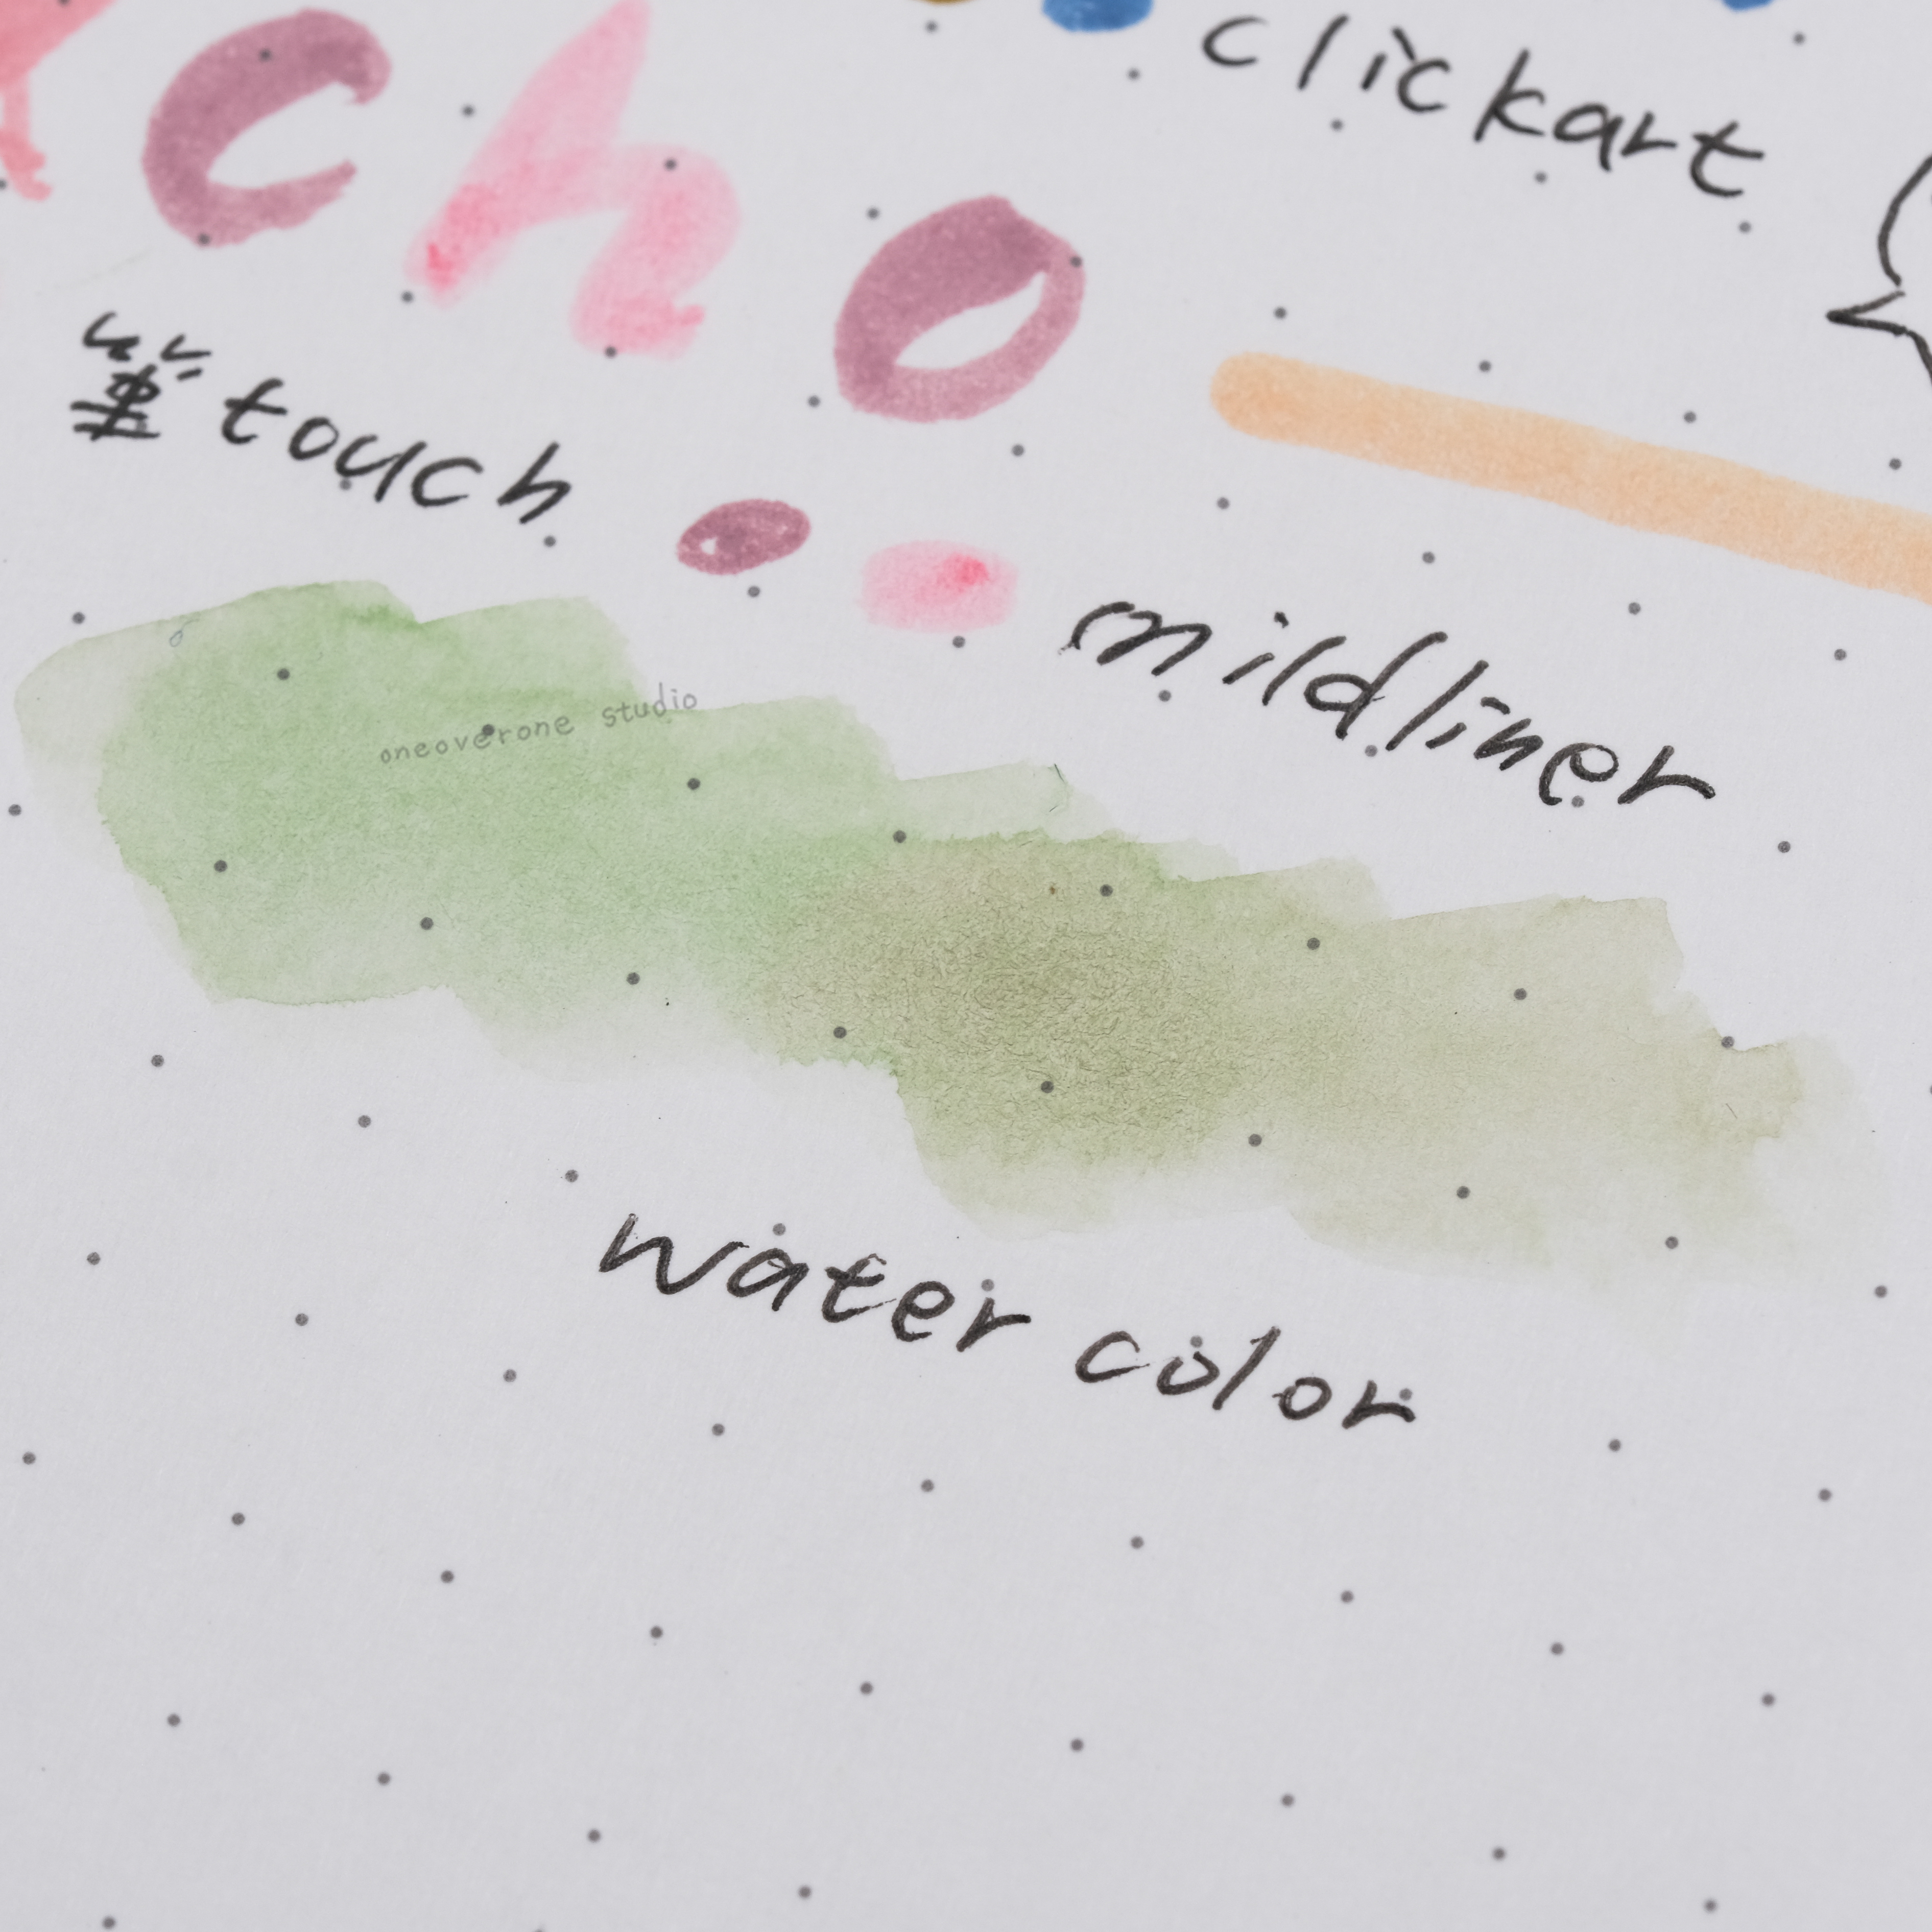 cho
clickart
筆touch
mildliner
oneoverone studio
water color